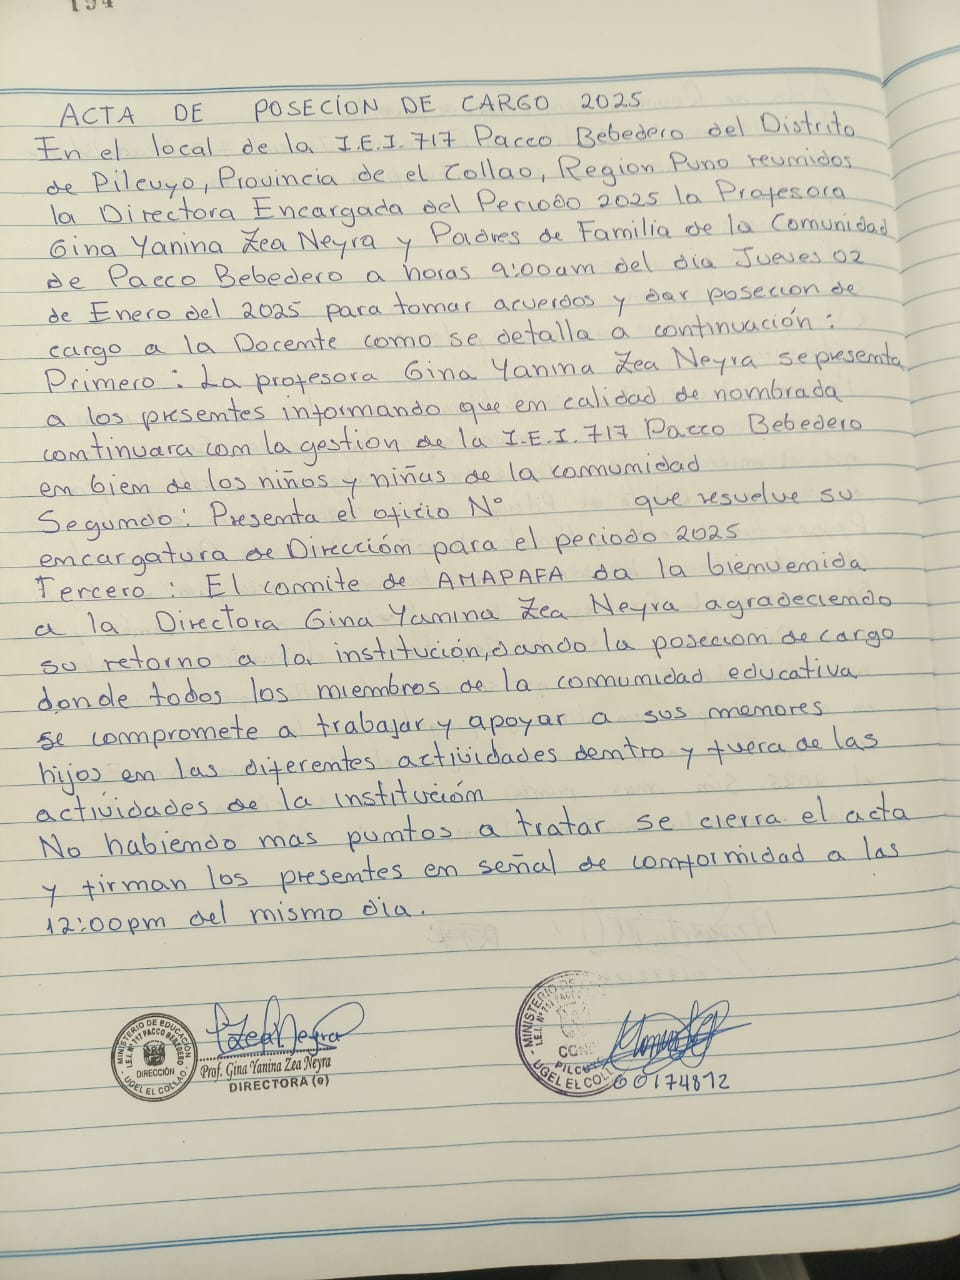 194
ACTA DE POSECION DE CARGO 2025
En el local de la I.E.I. 717 Pacco Bebedero del Distrito
de Pilcuyo, Provincia de el Collao, Region Puno reunidos
la Directora Encargada del Periodo 2025 la Profesora
Gina Yanina Zea Neyra y Padres de Familia de la Comunidad
de Pacco Bebedero a horas 9:00am del dia Jueves 02
de Enero del 2025 para tomar acuerdos y dar poseccion de
cargo a la Docente como se detalla a continuación:
Primero: La profesora Gina Yanina Zea Neyra se presenta
a los presentes informando que en calidad de nombrada
continuara con la gestion de la I.E.I. 717 Pacco Bebedero
en bien de los niños y niñas de la comunidad
Segundo: Presenta el oficio N° que resuelve su
encargatura de Dirección para el periodo 2025
Tercero: El comite de AMAPAFA da la bienvenida
a la Directora Gina Yanina Zea Neyra agradeciendo
su retorno a la institución, dando la poseccion de cargo
donde todos los miembros de la comunidad educativa
se compromete a trabajar y apoyar a sus menores
hijos en las diferentes actividades dentro y fuera de las
actividades de la institución
No habiendo mas puntos a tratar se cierra el acta
y firman los presentes en señal de conformidad a las
12:00pm del mismo dia.
MINISTERIO DE EDUCACIÓN
I.E.I. N° 717 PACCO BEBEDERO
DIRECCIÓN
UGEL EL COLLAO
Zea Neyra
Prof. Gina Yanina Zea Neyra
DIRECTORA (e)
MINISTERIO DE
I.E.I. N° 717 PACCO
UGEL EL COLL
60174872